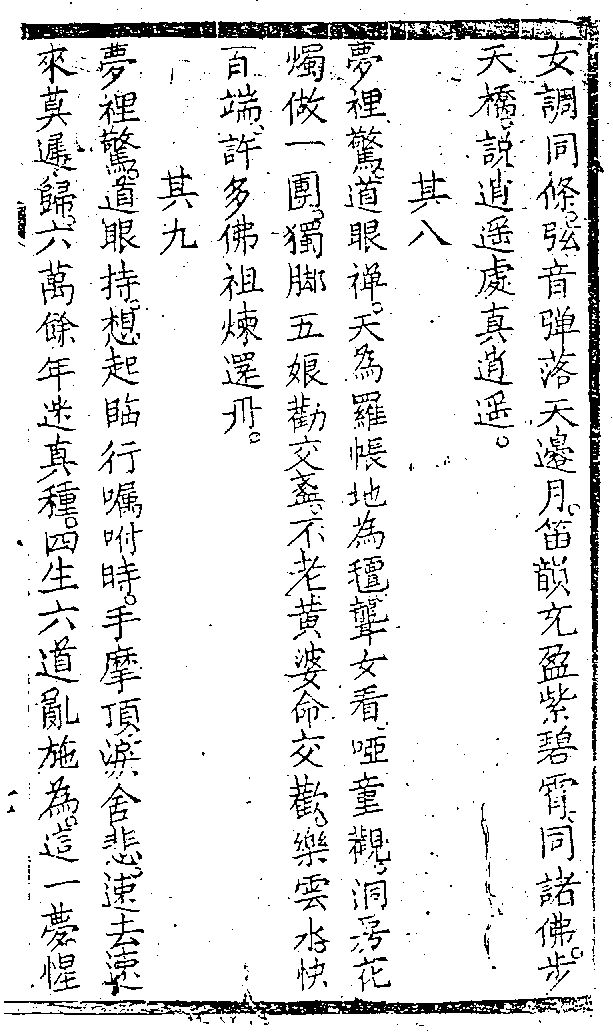 女調同條。弦音弹落天邊月。笛韻充盈紫碧霄。同諸佛。步
天橋。説逍遥處真逍遥。
其八
夢裡驚。道眼禅。天為羅帳地為氊。聾女看。啞童觀。洞房花
燭做一團。獨脚五娘勸交盞。不老黄婆命交歡。樂雲水。快
百端。許多佛祖煉還丹。
其九
夢裡驚。道眼持。想起臨行嘱咐時。手摩頂。淚含悲。速去速
來莫遲歸。六萬餘年迷真種。四生六道亂施為。這一夢。惺